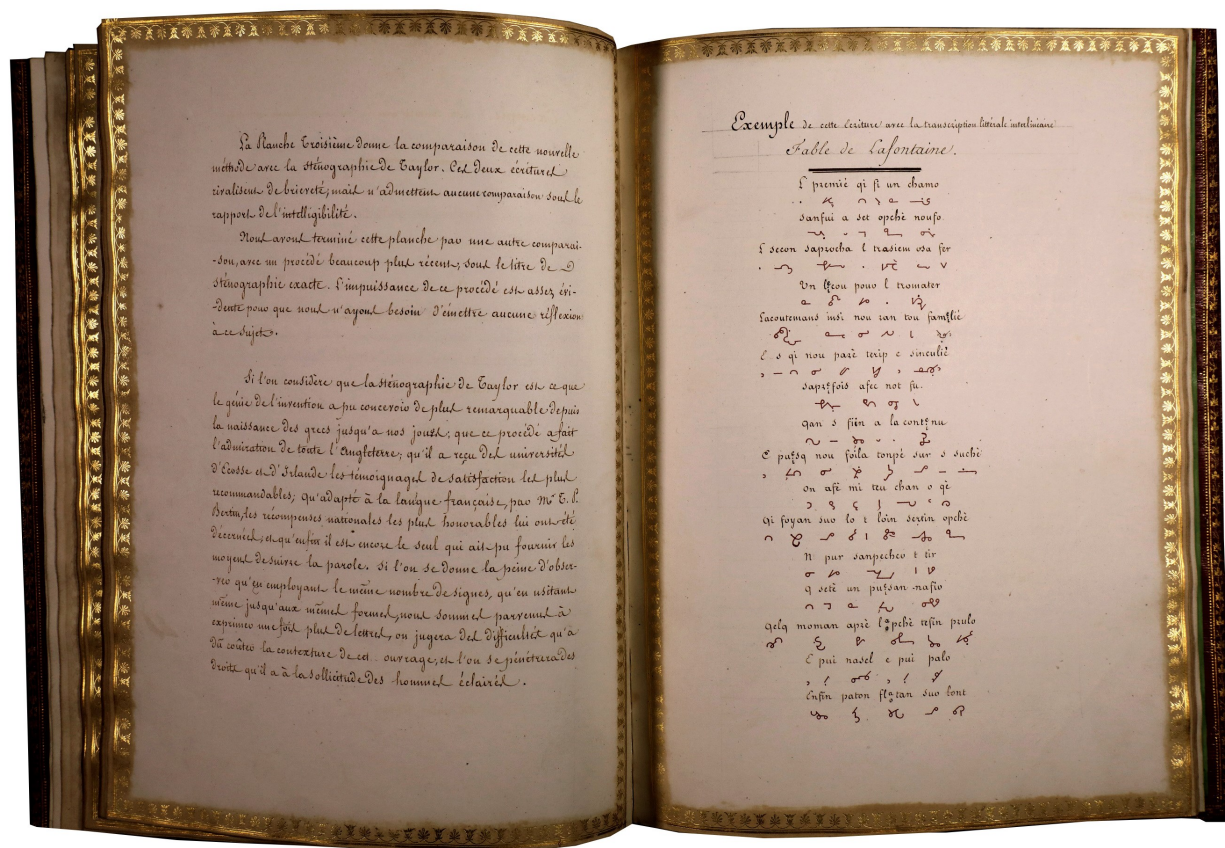 La Planche Troisième donne la comparaison de cette nouvelle
méthode avec la sténographie de Taylor. Ces deux écritures
rivalisent de brièveté, mais n'admettent aucune comparaison sous le
rapport de l'intelligibilité.
Nous avons terminé cette planche par une autre comparai-
-son, avec un procédé beaucoup plus récent, sous le titre de
sténographie exacte. L'impuissance de ce procédé est assez évi-
-dente pour que nous n'ayons besoin d'émettre aucune réflexion
à ce sujet.
Si l'on considère que la sténographie de Taylor est ce que
le génie de l'invention a pu concevoir de plus remarquable depuis
la naissance des grecs jusqu'a nos jours; que ce procédé a fait
l'admiration de toute l'Angleterre; qu'il a reçu des universités
d'Ecosse et d'Irlande les témoignages de satisfaction les plus
recommandables; qu'adapté à la langue française, par Mr T. P.
Bertin, les récompenses nationales les plus honorables lui ont été
décernées; et qu'enfin il est encore le seul qui ait pu fournir les
moyens de suivre la parole. si l'on se donne la peine d'obser-
-ver qu'en employant le même nombre de signes, qu'en usitant
même jusqu'aux mêmes formes, nous sommes parvenus à
exprimer une fois plus de lettres, on jugera des difficultés qu'a
dû coûter la contexture de cet ouvrage, et l'on se pénétrera des
droits qu'il a à la sollicitude des hommes éclairés.
Exemple de cette écriture avec la transcription littérale interlinéaire
Fable de Lafontaine.
L premié qi fi un chamo
sanfui a set opchè noufo
L secon saprocha l trasiem osa fer
Un pour l tromater
insi nou ran tou
C s qi nou parè terip e sinculié
afec not fu.
qan s fiin a la
E nou foila tonpé sur s suchè
on afè mi teu chan o gè
Qi foyan suo lo t loin sertin opchè
N pur sanpecheo t tir
q setè un nafio
Qelq moman aprè tefin prulo
E pui nasel e pui palo
Enfin paton suo lont